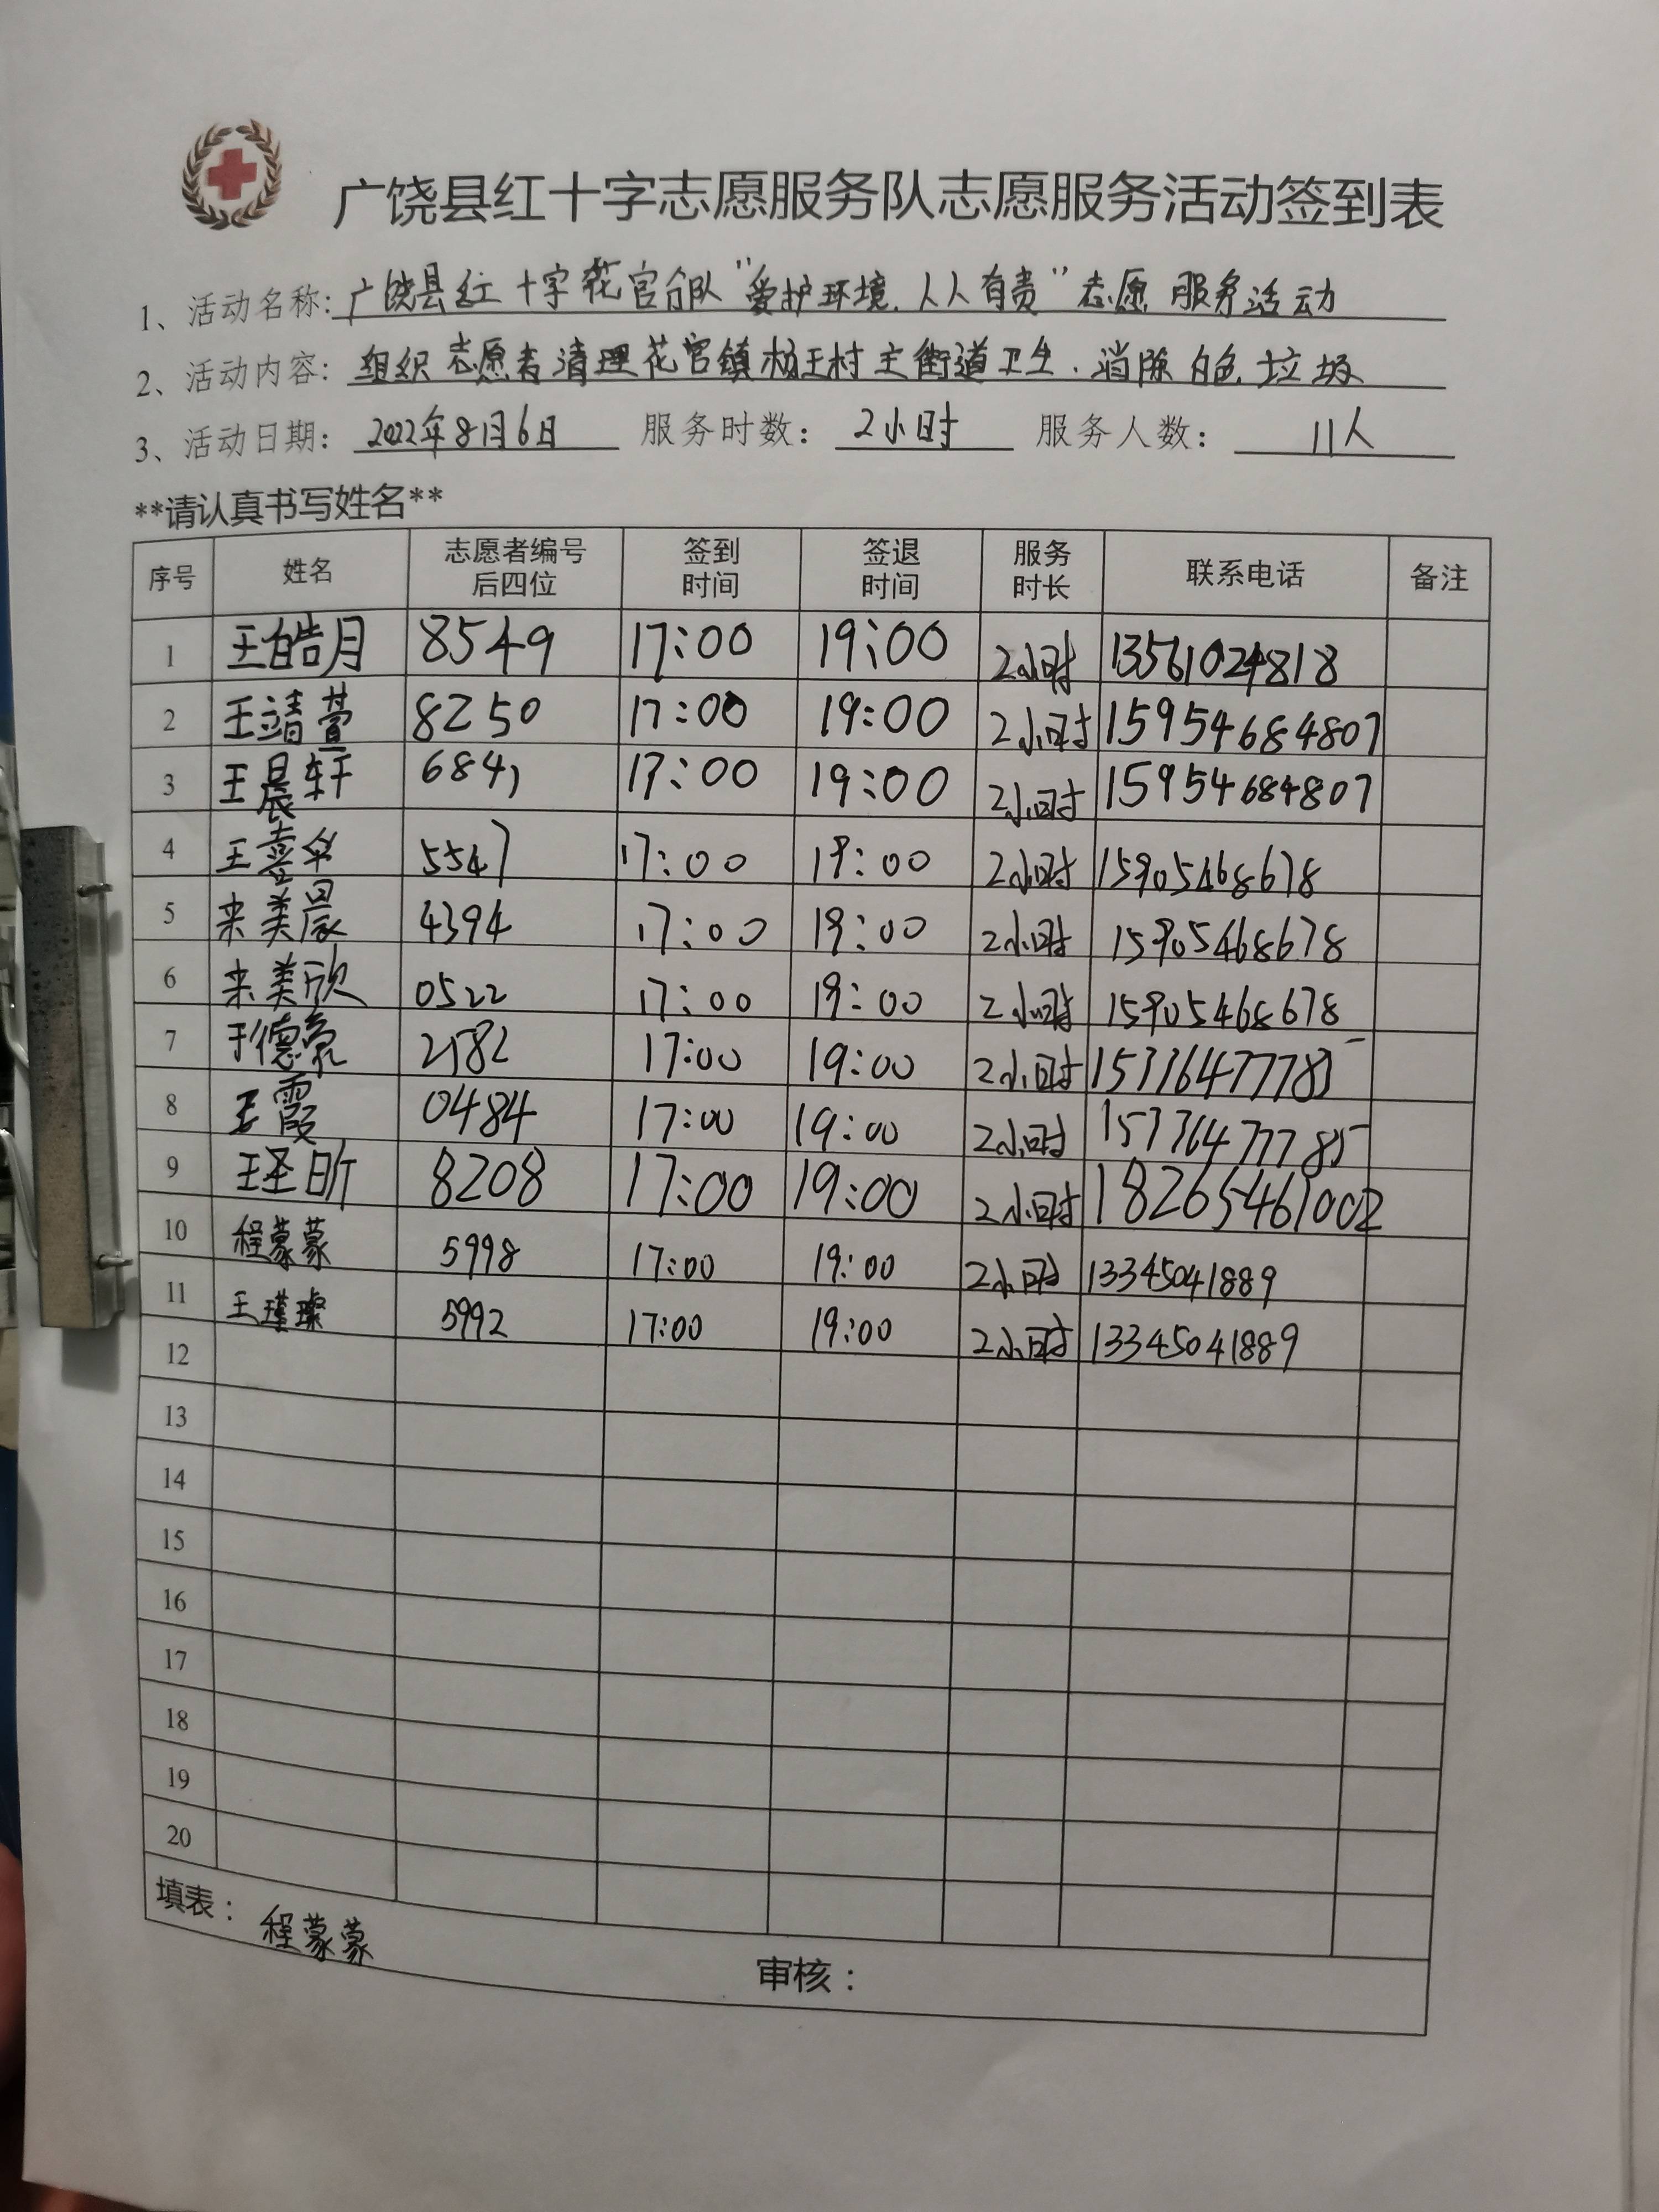 广饶县红十字志愿服务队志愿服务活动签到表
1、活动名称: 广饶县红十字花官分队"爱护环境.人人有责"志愿服务活动
2、活动内容: 组织志愿者清理花官镇杨王村主街道卫生.消除白色垃圾
3、活动日期: 2022年8月6日 服务时数: 2小时 服务人数: 11人
**请认真书写姓名**
序号 姓名 志愿者编号后四位 签到时间 签退时间 服务时长 联系电话 备注
1 王皓月 8549 17:00 19:00 2小时 13561024818
2 王靖萱 8250 17:00 19:00 2小时 15954684807
3 王晨轩 6841 17:00 19:00 2小时 15954684807
4 王 5547 17:00 19:00 2小时 15905468678
5 来美晨 4394 17:00 19:00 2小时 15905468678
6 来美欣 0522 17:00 19:00 2小时 15905468678
7 于德豪 2182 17:00 19:00 2小时
8 王霞 0484 17:00 19:00 2小时
9 王圣昕 8208 17:00 19:00 2小时 18265461002
10 程蒙蒙 5998 17:00 19:00 2小时 13345041889
11 王瑾璨 5992 17:00 19:00 2小时 13345041889
12
13
14
15
16
17
18
19
20
填表: 程蒙蒙 审核: